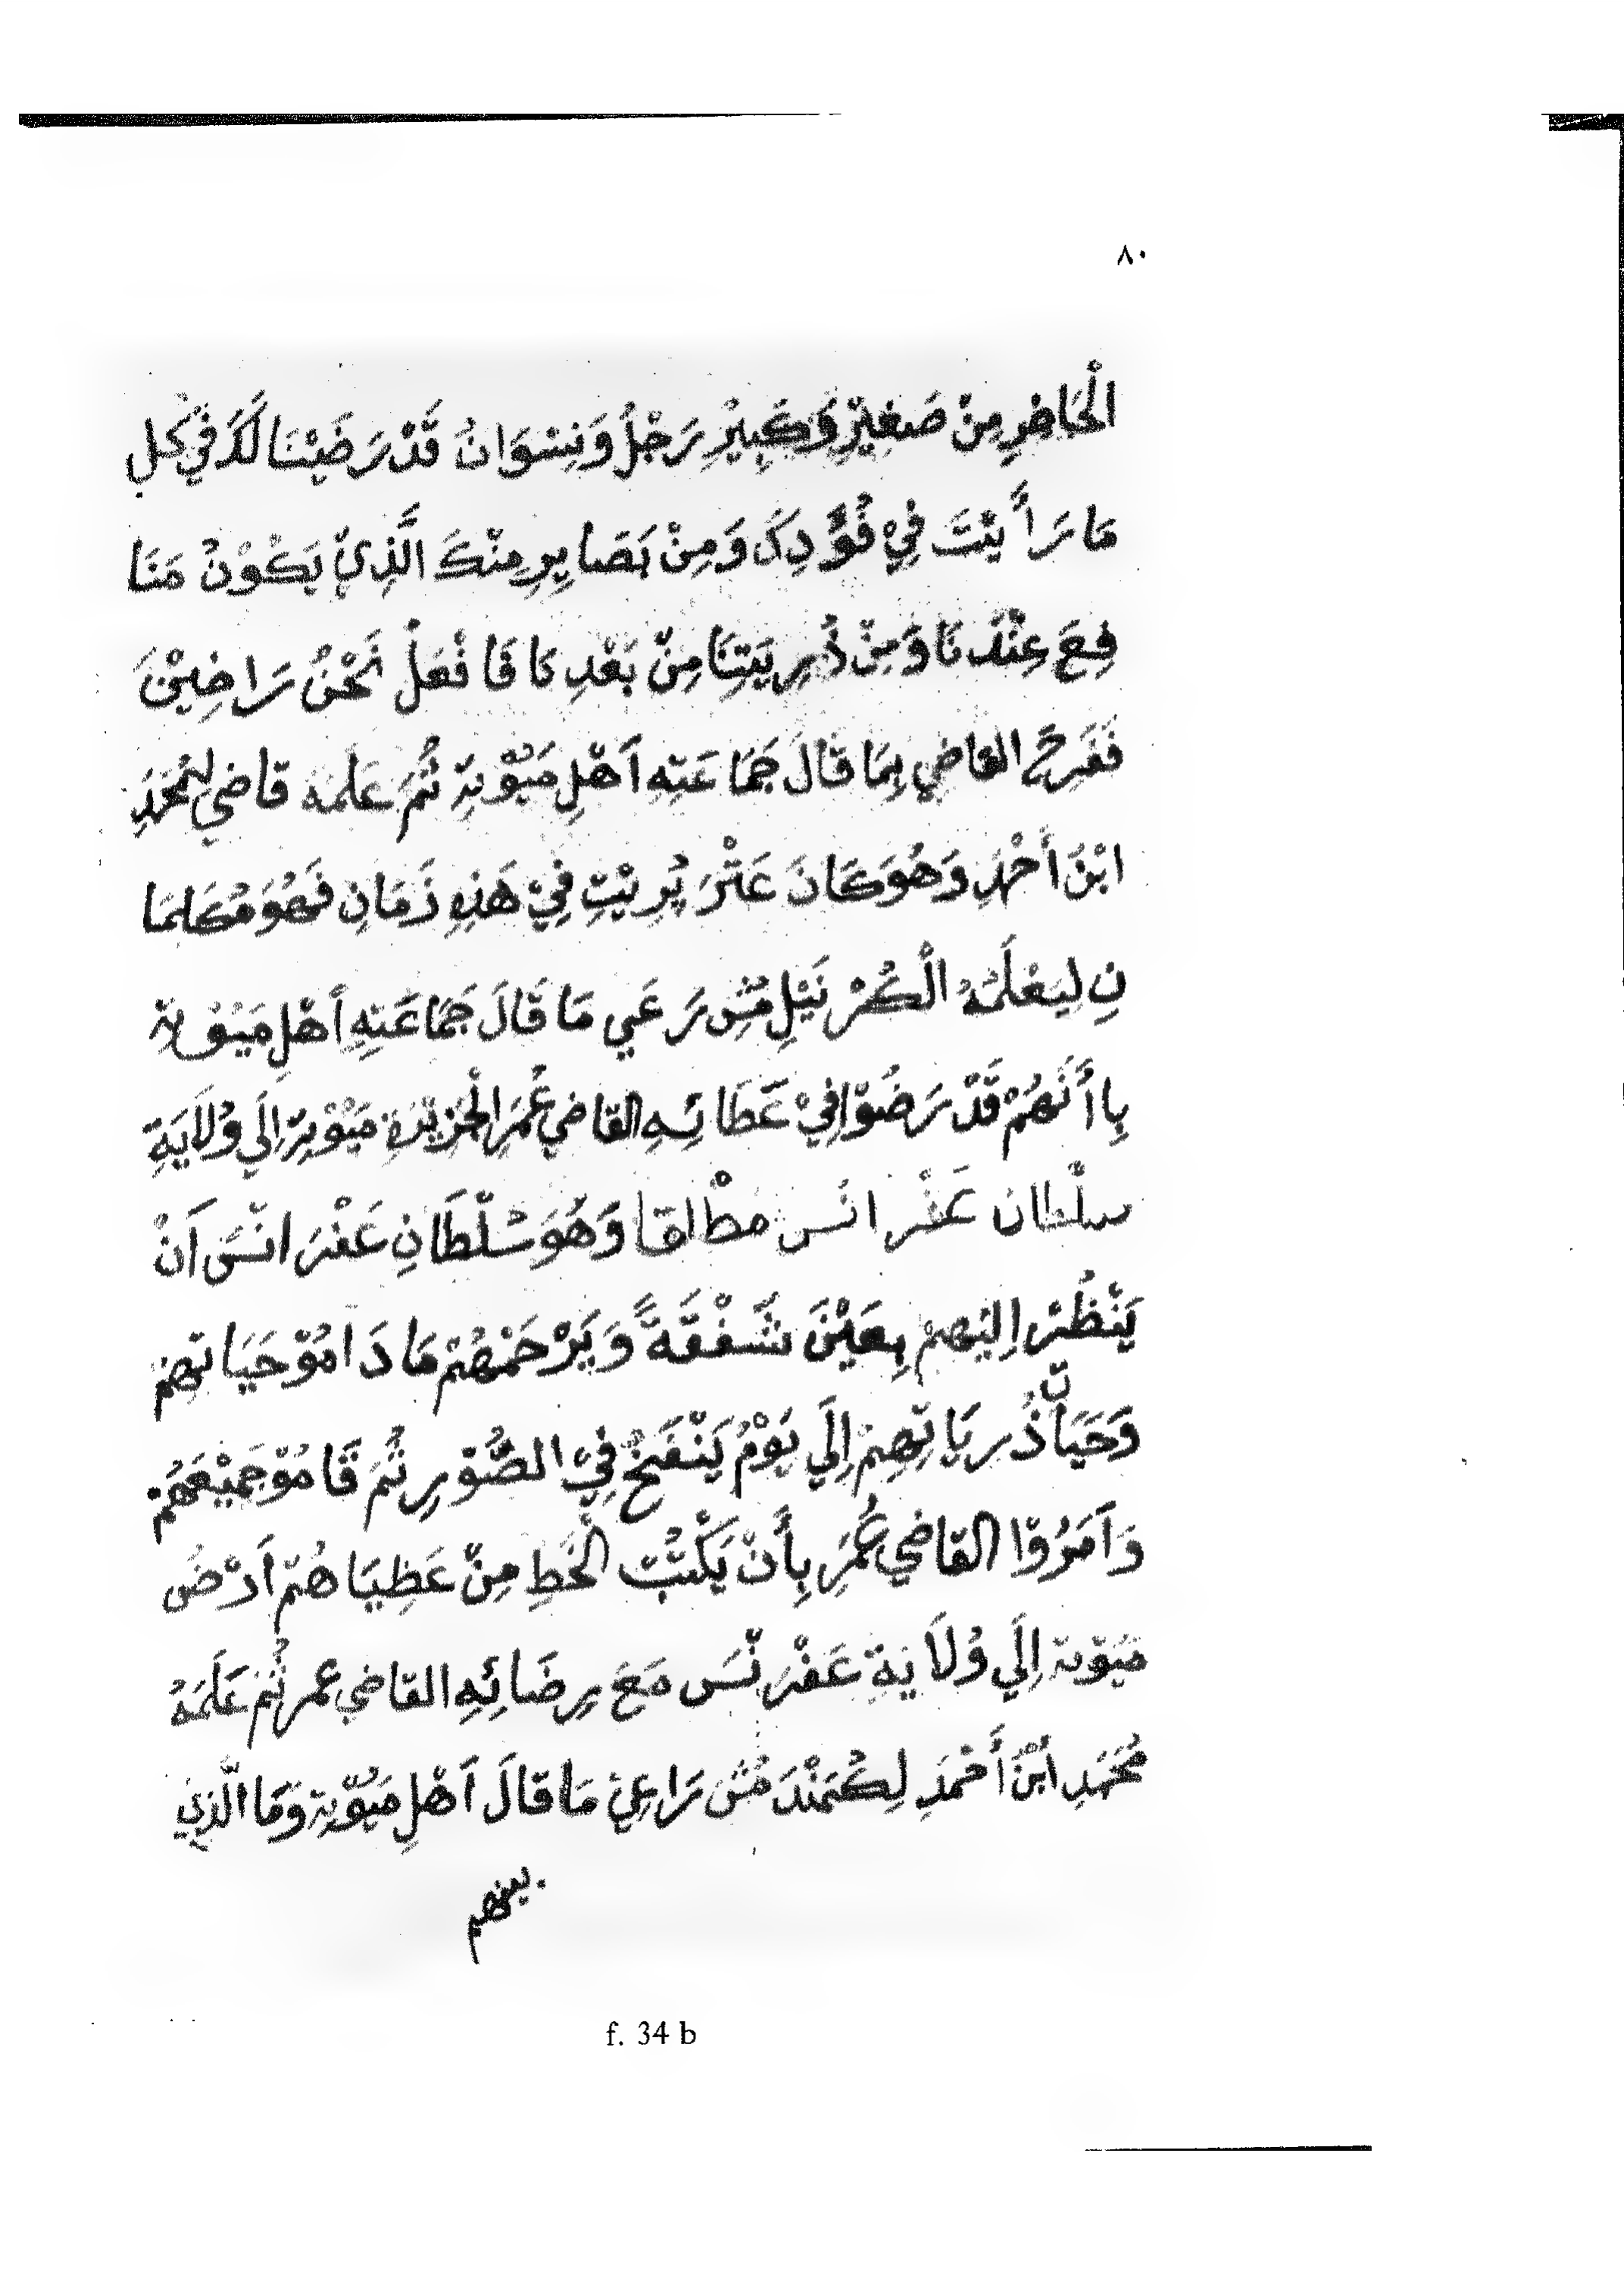 ٨٠
الْحَاضِرِ مِنْ صَغِيْرٍ وَكَبِيْرِ رَجْلُ وَنِسْوَانُ قَدْ رَضَيْنَا لَكَ فِيْ كُلِ
مَا رَأَيْتَ فِيْ فُؤَدِكَ وَمِنْ بَصَايِرِ مِنْكَ الَّذِيْ يَكُوْنُ مَنَا
فِعَ عِنْدَنَا وَمِنْ ذُرِيَتِنَا مِنْ بَعْدِنَا فَا فْعَلْ نَحْنُ رَاضِيْنَ
فَفَرِحَ القاضي بِمَا قَالَ جَمَاعَتِهِ اَهْلِ مَيُوْتَةِ ثُمَ عَلمَهُ قاضي لِمُحَمَدِ
ابْنُ أَحْمَدِ وَهُوَ كَانَ عَتْرَ پُرِيْتِ فِيْ هَذِهِ زَمَانِ فَهُوَ مُكَلِمَا
نِ لِيَعْلَمُهُ الْكُمْرْنَيْلِ مُسْ رَعَي مَا قَالَ جَمَاعَتِهِ أَهْلِ مَيُوْتة
بِا أَنَهُمْ قَدْ رَضُوْا فِيْ عَطَائِهِ القاضي عُمَرَ الْجَزِيْرَةِ مَيُوْتِةِ إِلَي وُلَايَةِ
سلْطان عَفْرانَس مطْالقا وَهُوَ سُلْطَانِ عَفْرَانْسَ اَنْ
يَنْظُرْ اِلَيْهِمْ بِعَيْنَ شَفْقَةً وَيَرْحَمْهُمْ مَا دَامُوْ حَيَاتهِمْ
وَحَيَاتّ ذُرِيَاتِهِمْ إِلَي يَوْمُ يَنْفَخُ فِيْ الصُّوْرِ ثُمَ قَامُوْ جَمِيْعَهُمْ
وَاَمَرُوْا القاضي عُمَرِ بِأَنْ يَكْتُبْ الخَطِ مِنْ عَطِيَاهُمْ اَرْضُ
مَيُوْتة إِلَي وُلَايَةِ عَفْرَنْسَ مَعَ رِضَائِهِ القاضي عمر ثُمَ عَلَمَهُ
مُحَمَدِ اَبْنُ أَحْمَدِ لِكُمَنْدَ مُسْ رَاعِيْ مَا قالَ اَهْلِ مَيُوْتِة وَمَا الَّذِيْ
بينهم
f. 34 b